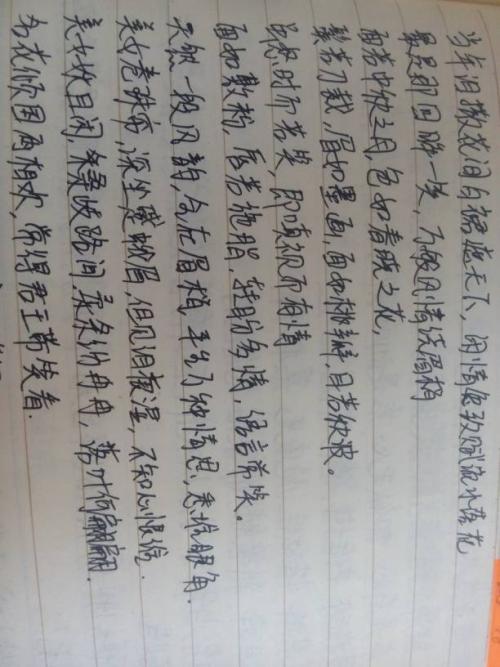 当年泪撒花间白裙遮天下，闲情偶致赋流水落花
最是那回眸一笑，万般风情绕眉梢
面若中秋之月，色如春晓之花
鬓若刀裁，眉如墨画，面如桃瓣，目若秋波。
虽怒时而若笑，即嗔视而有情
面如敷粉，唇若施脂，转盼多情，语言常笑。
天然一段风韵，全在眉梢，平生万种情思，悉堆眼角.
美女卷珠帘，深坐蹙蛾眉，但见泪痕湿，不知心恨谁.
美女妖且闲，采桑歧路间，柔条纷冉冉，落叶何翩翩.
名花倾国两相欢，常得君王带笑看.